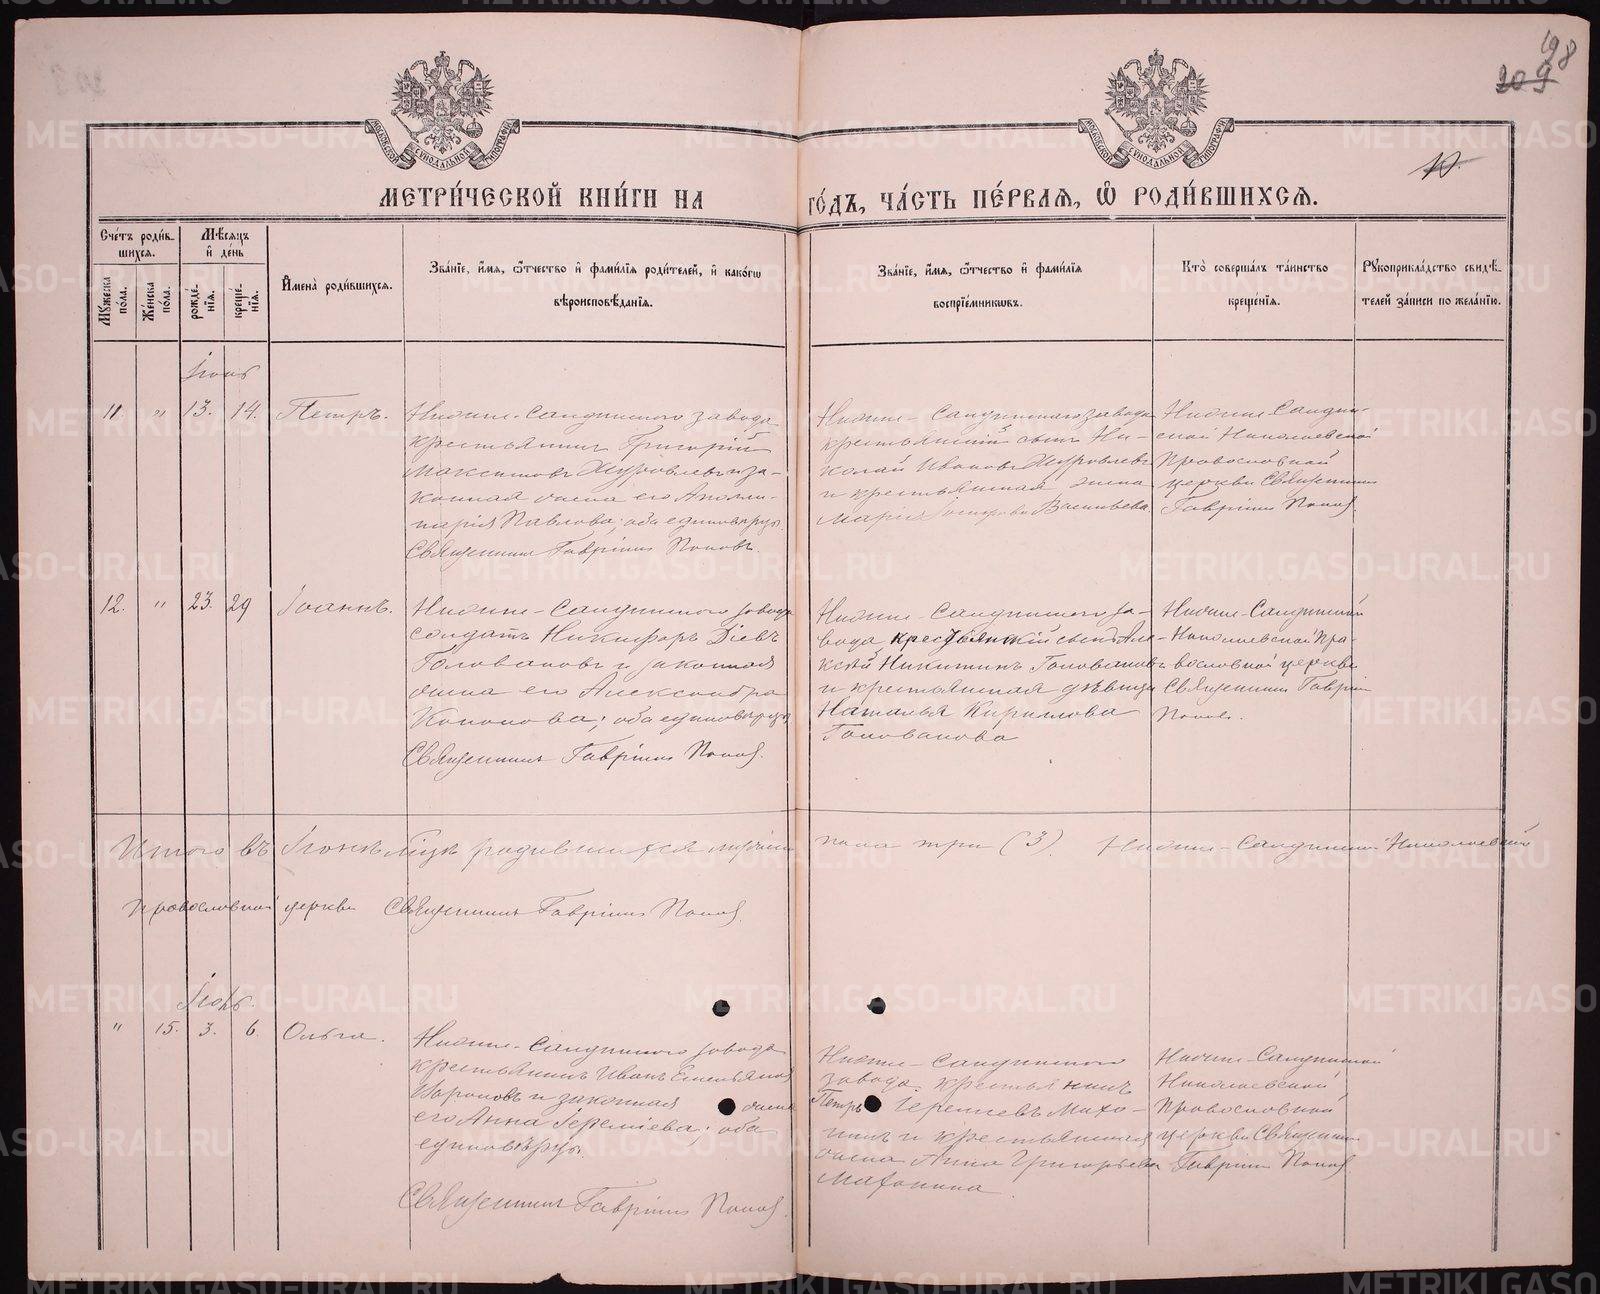 198
209
10.
МОСКОВСКОЙ СУНОДАЛЬНОЙ ТИПОГРАФІИ
МОСКОВСКОЙ СУНОДАЛЬНОЙ ТИПОГРАФІИ
МЕТРИ́ЧЕСКОЙ КНИ́ГИ НА ГО́ДЪ, ЧА́СТЬ ПЕ́РВАЯ, Ѡ҆ РОДИ́ВШИХСЯ.
Сче́тъ роди́в-
шихся.
Мѣ́сяцъ
и҆ де́нь
Мꙋ́жеска
по́ла.
Же́нска
по́ла.
рожде́-
нїя.
креще́-
нїя.
И҆мена̀ роди́вшихся.
Зва́нїе, и҆́мя, ѻ҆́тчество и҆ фами́лїя роди́телей, и҆ како́гѡ
вѣроисповѣ́данїя.
Зва́нїе, и҆́мя, ѻ҆́тчество и҆ фами́лїя
воспрїе́мникѡвъ.
Кто̀ соверша́лъ та́инство
креще́нїя.
Рꙋкоприкла́дство свидѣ́-
телей за́писи по жела́нїю.
Іюнь
11 " 13. 14. Петръ.
Нижне-Салдинскаго завода
крестьянинъ Григорій
Максимовъ Журавлевъ и за-
конная жена его Аполли-
нарія Павлова; оба единоверцы.
Священникъ Гавріилъ Поповъ.
Нижне-Салдинскаго завода
крестьянскій сынъ Ни-
колай Ивановъ Журавлевъ
и крестьянская жена
Марія Васильева.
Нижне-Салдин-
ской Николаевской
Православной
церкви Священникъ
Гавріилъ Поповъ.
12. " 23. 29 Іоаннъ.
Нижне-Салдинскаго завода
солдатъ Никифоръ Діевъ
Головановъ и законная
жена его Александра
Кононова; оба единоверцы
Священникъ Гавріилъ Поповъ.
Нижне-Салдинскаго за-
вода крестьянскій сынъ Але-
ксѣй Никитинъ Головановъ
и крестьянская дѣвица
Наталья Кирилова
Голованова
Нижне-Салдинской
Николаевской Пра-
вославной церкви
Священникъ Гавріилъ
Поповъ.
Итого въ Іюнѣ мцѣ родившихся мужска пола три (3). Нижне-Салдинской Николаевской
Православной церкви Священникъ Гавріилъ Поповъ.
Іюль.
" 15. 3. 6. Ольга.
Нижне-Салдинскаго завода
крестьянинъ Иванъ Емельяновъ
Вороновъ и законная жена
его Анна Іереміева; оба
единовѣрцы.
Священникъ Гавріилъ Поповъ.
Нижне-Салдинскаго
завода крестьянинъ
Петръ Терентьевъ Махо-
нинъ и крестьянская
жена Анна Григорьева
Махонина.
Нижне-Салдинской
Николаевской
Православной
церкви Священникъ
Гавріилъ Поповъ
METRIKI.GASO-URAL.RU